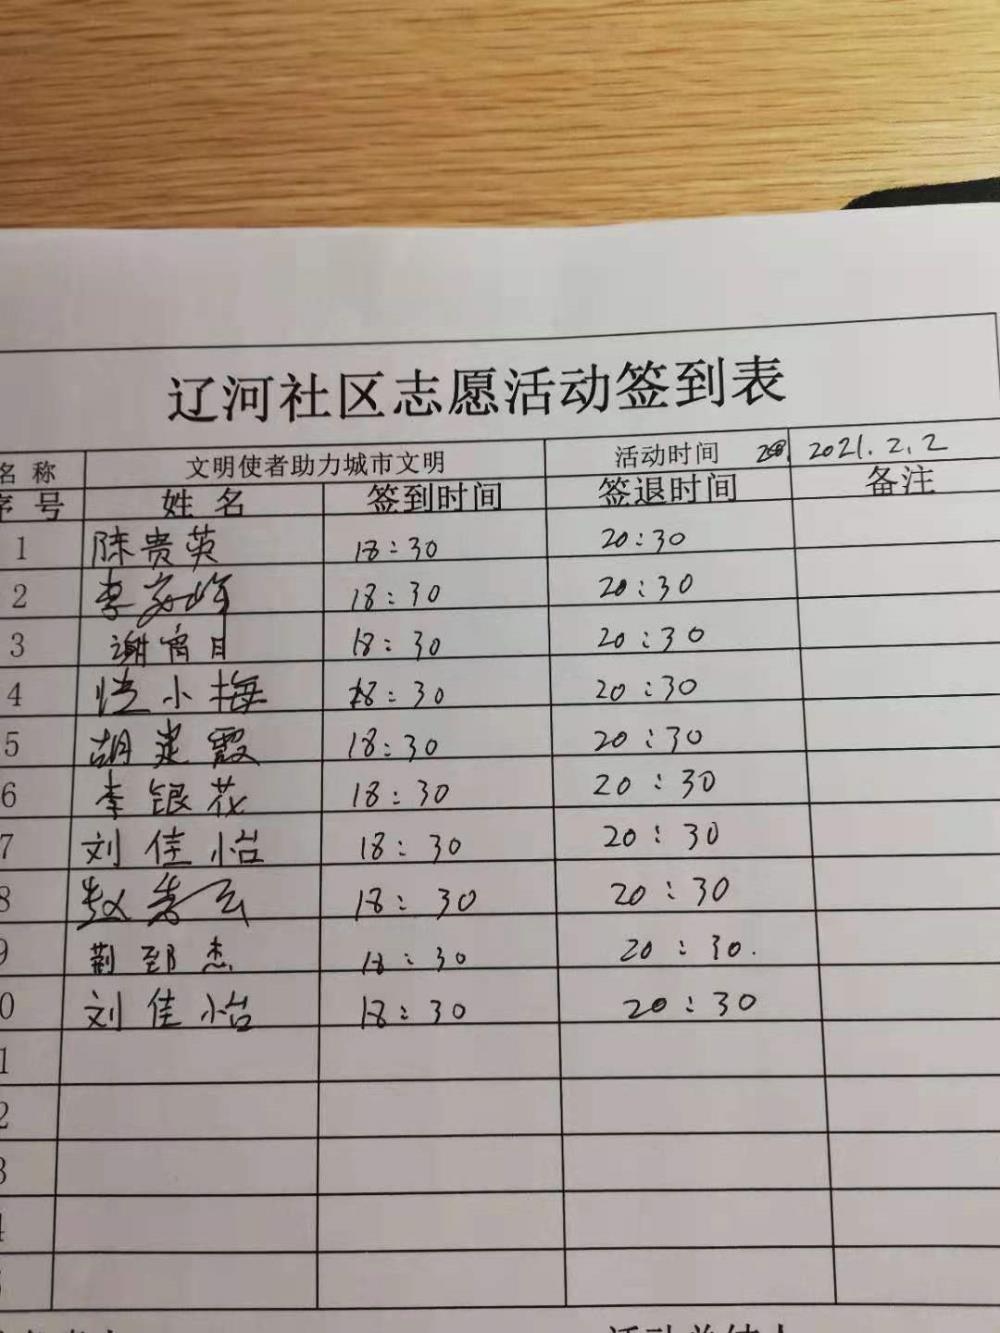 辽河社区志愿活动签到表
名称 文明使者助力城市文明 活动时间 2021.2.2
序号 姓名 签到时间 签退时间 备注
1 陈贵英 18:30 20:30
2 李 18:30 20:30
3 谢宵月 18:30 20:30
4 小梅 18:30 20:30
5 胡建霞 18:30 20:30
6 李银花 18:30 20:30
7 刘佳怡 18:30 20:30
8 赵 18:30 20:30
9 荆郅杰 18:30 20:30.
0 刘佳怡 18:30 20:30
1
2
3
4